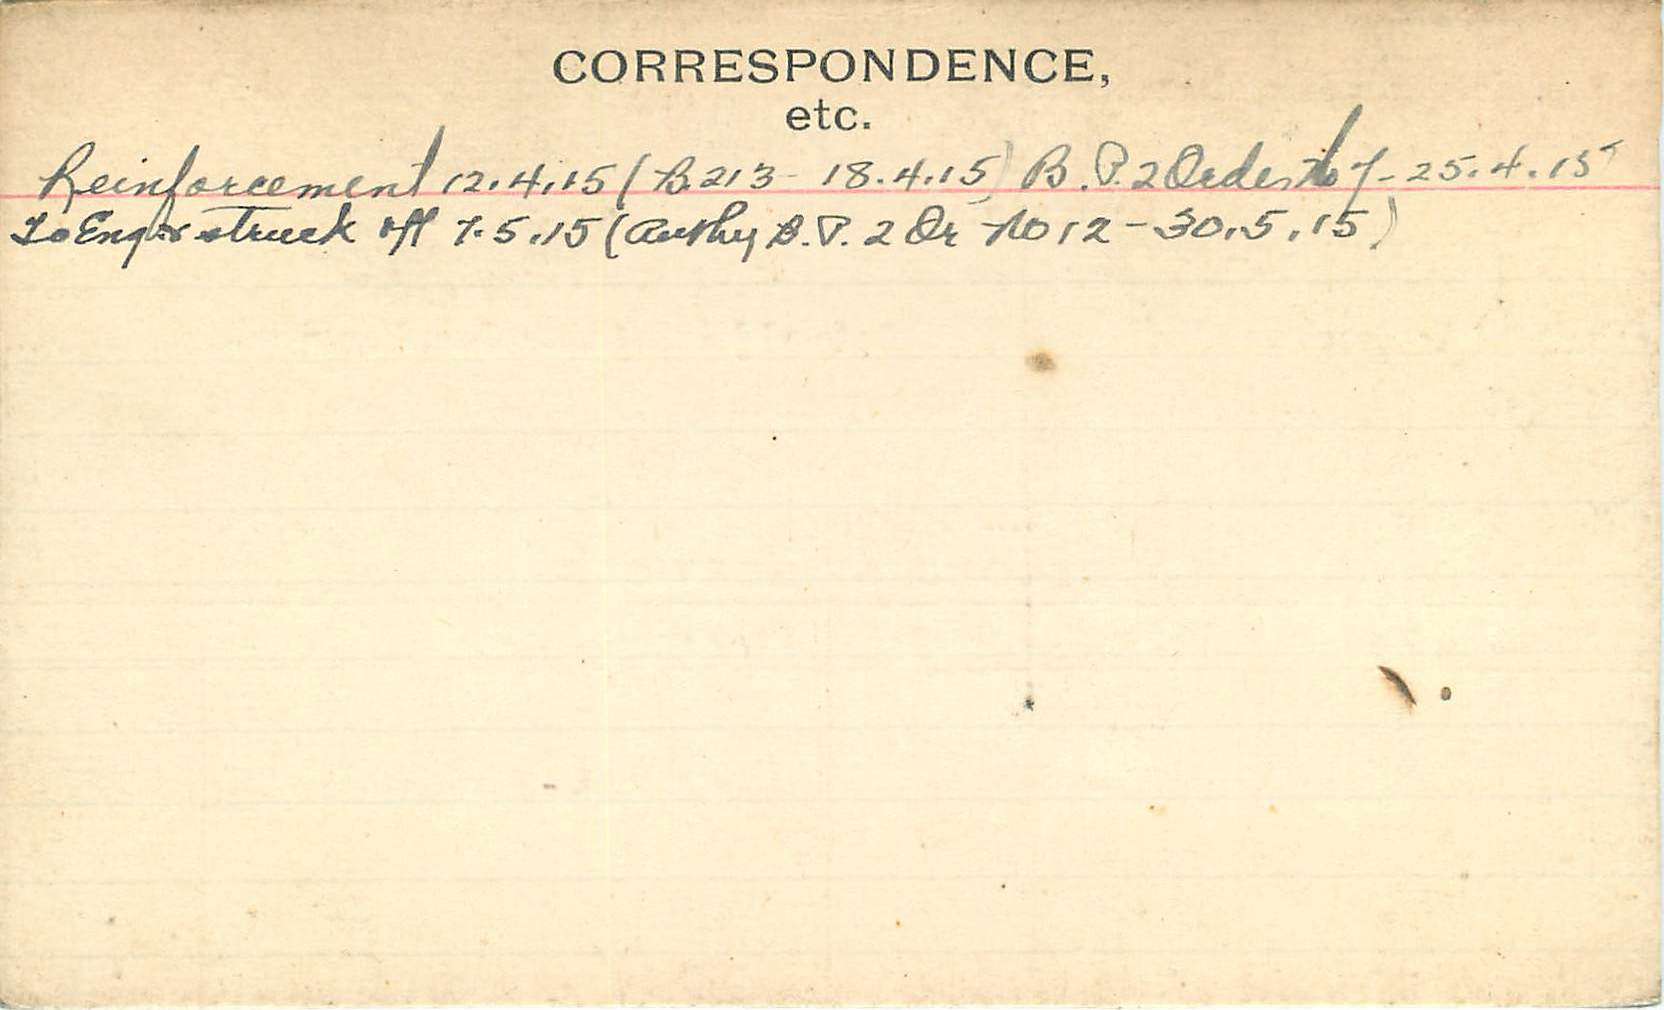 CORRESPONDENCE,
etc.
Reinforcement 12.4.15 (B.213 - 18.4.15) B.P.2 Order No 7 - 25.4.15
To Eng. & struck off 7.5.15 (Authy B.P. 2 Or No 12 - 30.5.15)